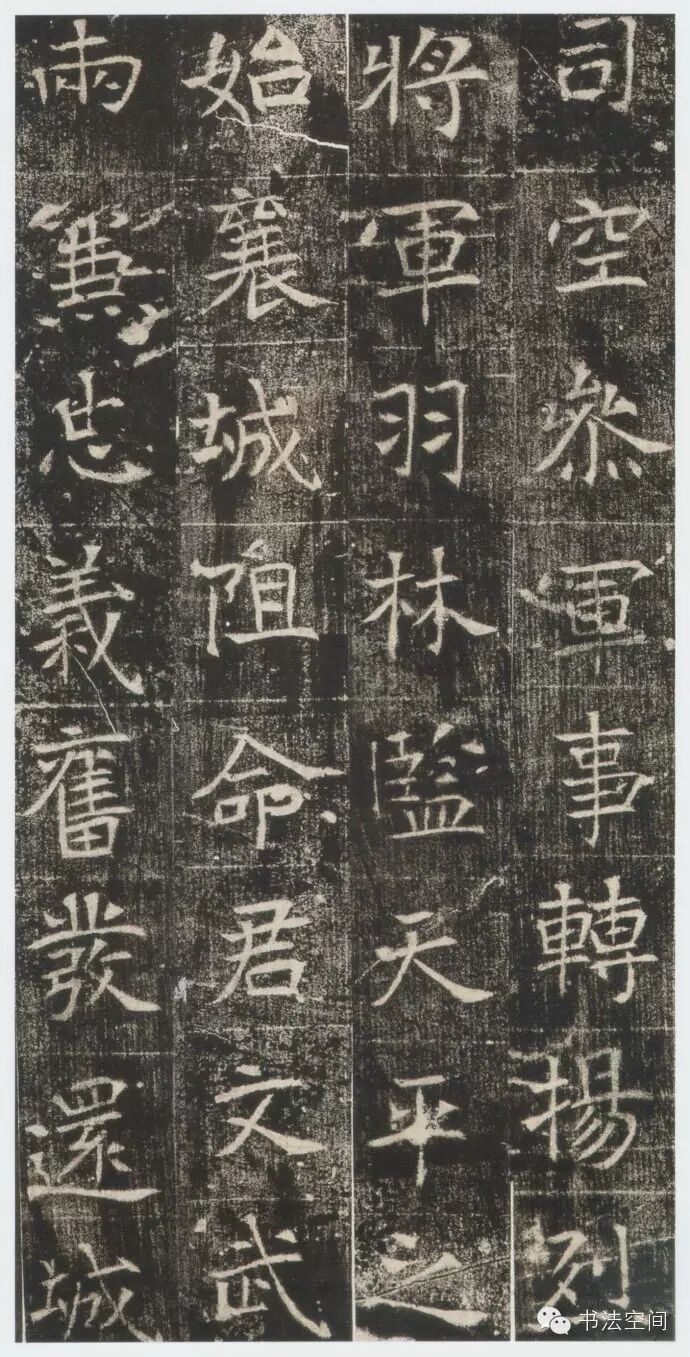 司空叅軍事轉揚列
將軍羽林監天平之
始襄城阻命君文武
兩兼忠義奮發還城
书法空间